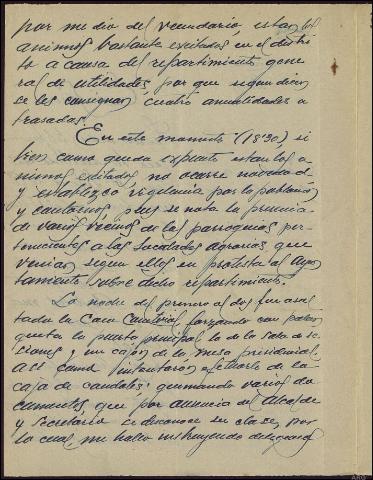 por medio del vecundario, estan los
animos bastante exitados en el distri
to a causa del repartimiento gene
ral de utilidades, por que segun dicen
se les consignan cuatro anualidades a
trasadas.
En este momento (18'30), si
bien como queda expuesto estan los a-
nimos exitados no ocurre novedad
y establezco vigilancia por la poblacion
y contornos, pues se nota la presencia
de varios vecinos de las parroquias per-
tenecientes a las sociedades agrarias que
venian segun ellos en protesta al Ayun
tamiento sobre dicho repartimiento.
La noche del primero al dos fue asal
tada la Casa Consistorial forzando con palan
queta la puerta principal la de la sala de se
siones y un cajon de la mesa presidencial,
asi como intentaron efectuarlo de la
caja de caudales; quemando varios do
cumentos, que por ausencia del Alcalde
y Secretario se desconoce su clase, por
lo cual me hallo instruyendo diligencias